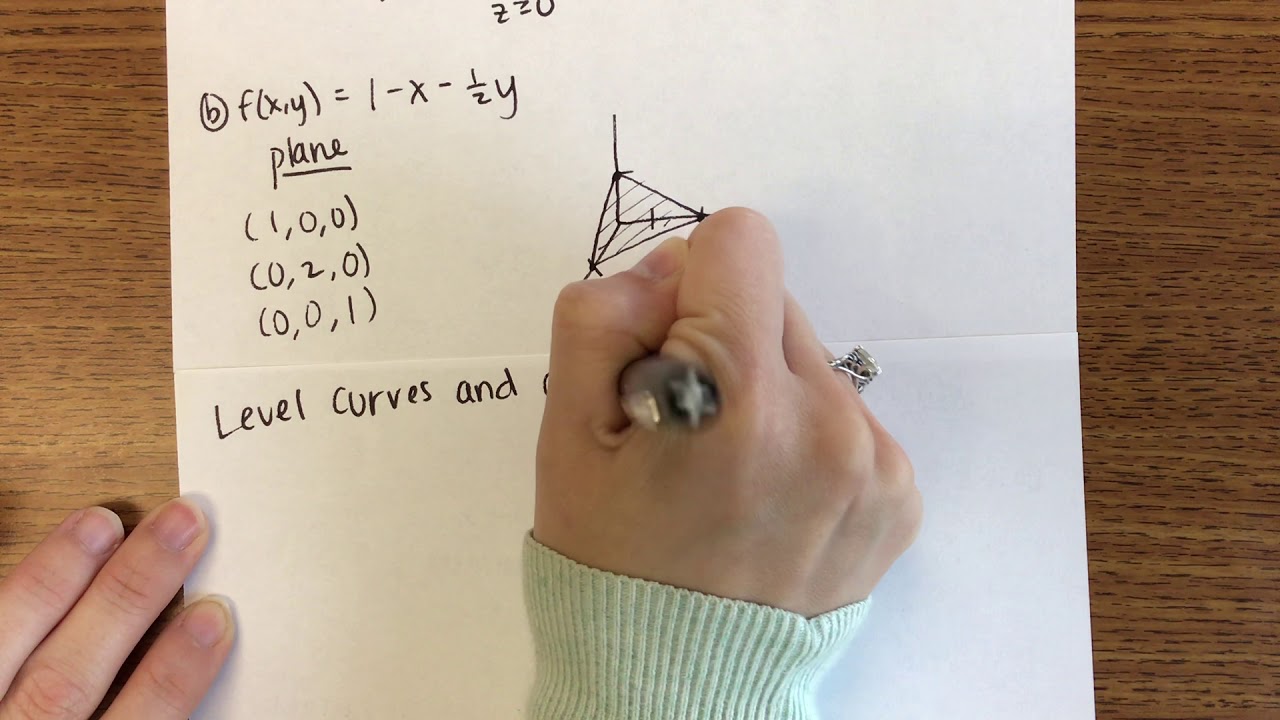 z≥0
ⓑ f(x,y) = 1-x-½y
plane
(1,0,0)
(0,2,0)
(0,0,1)
Level Curves and